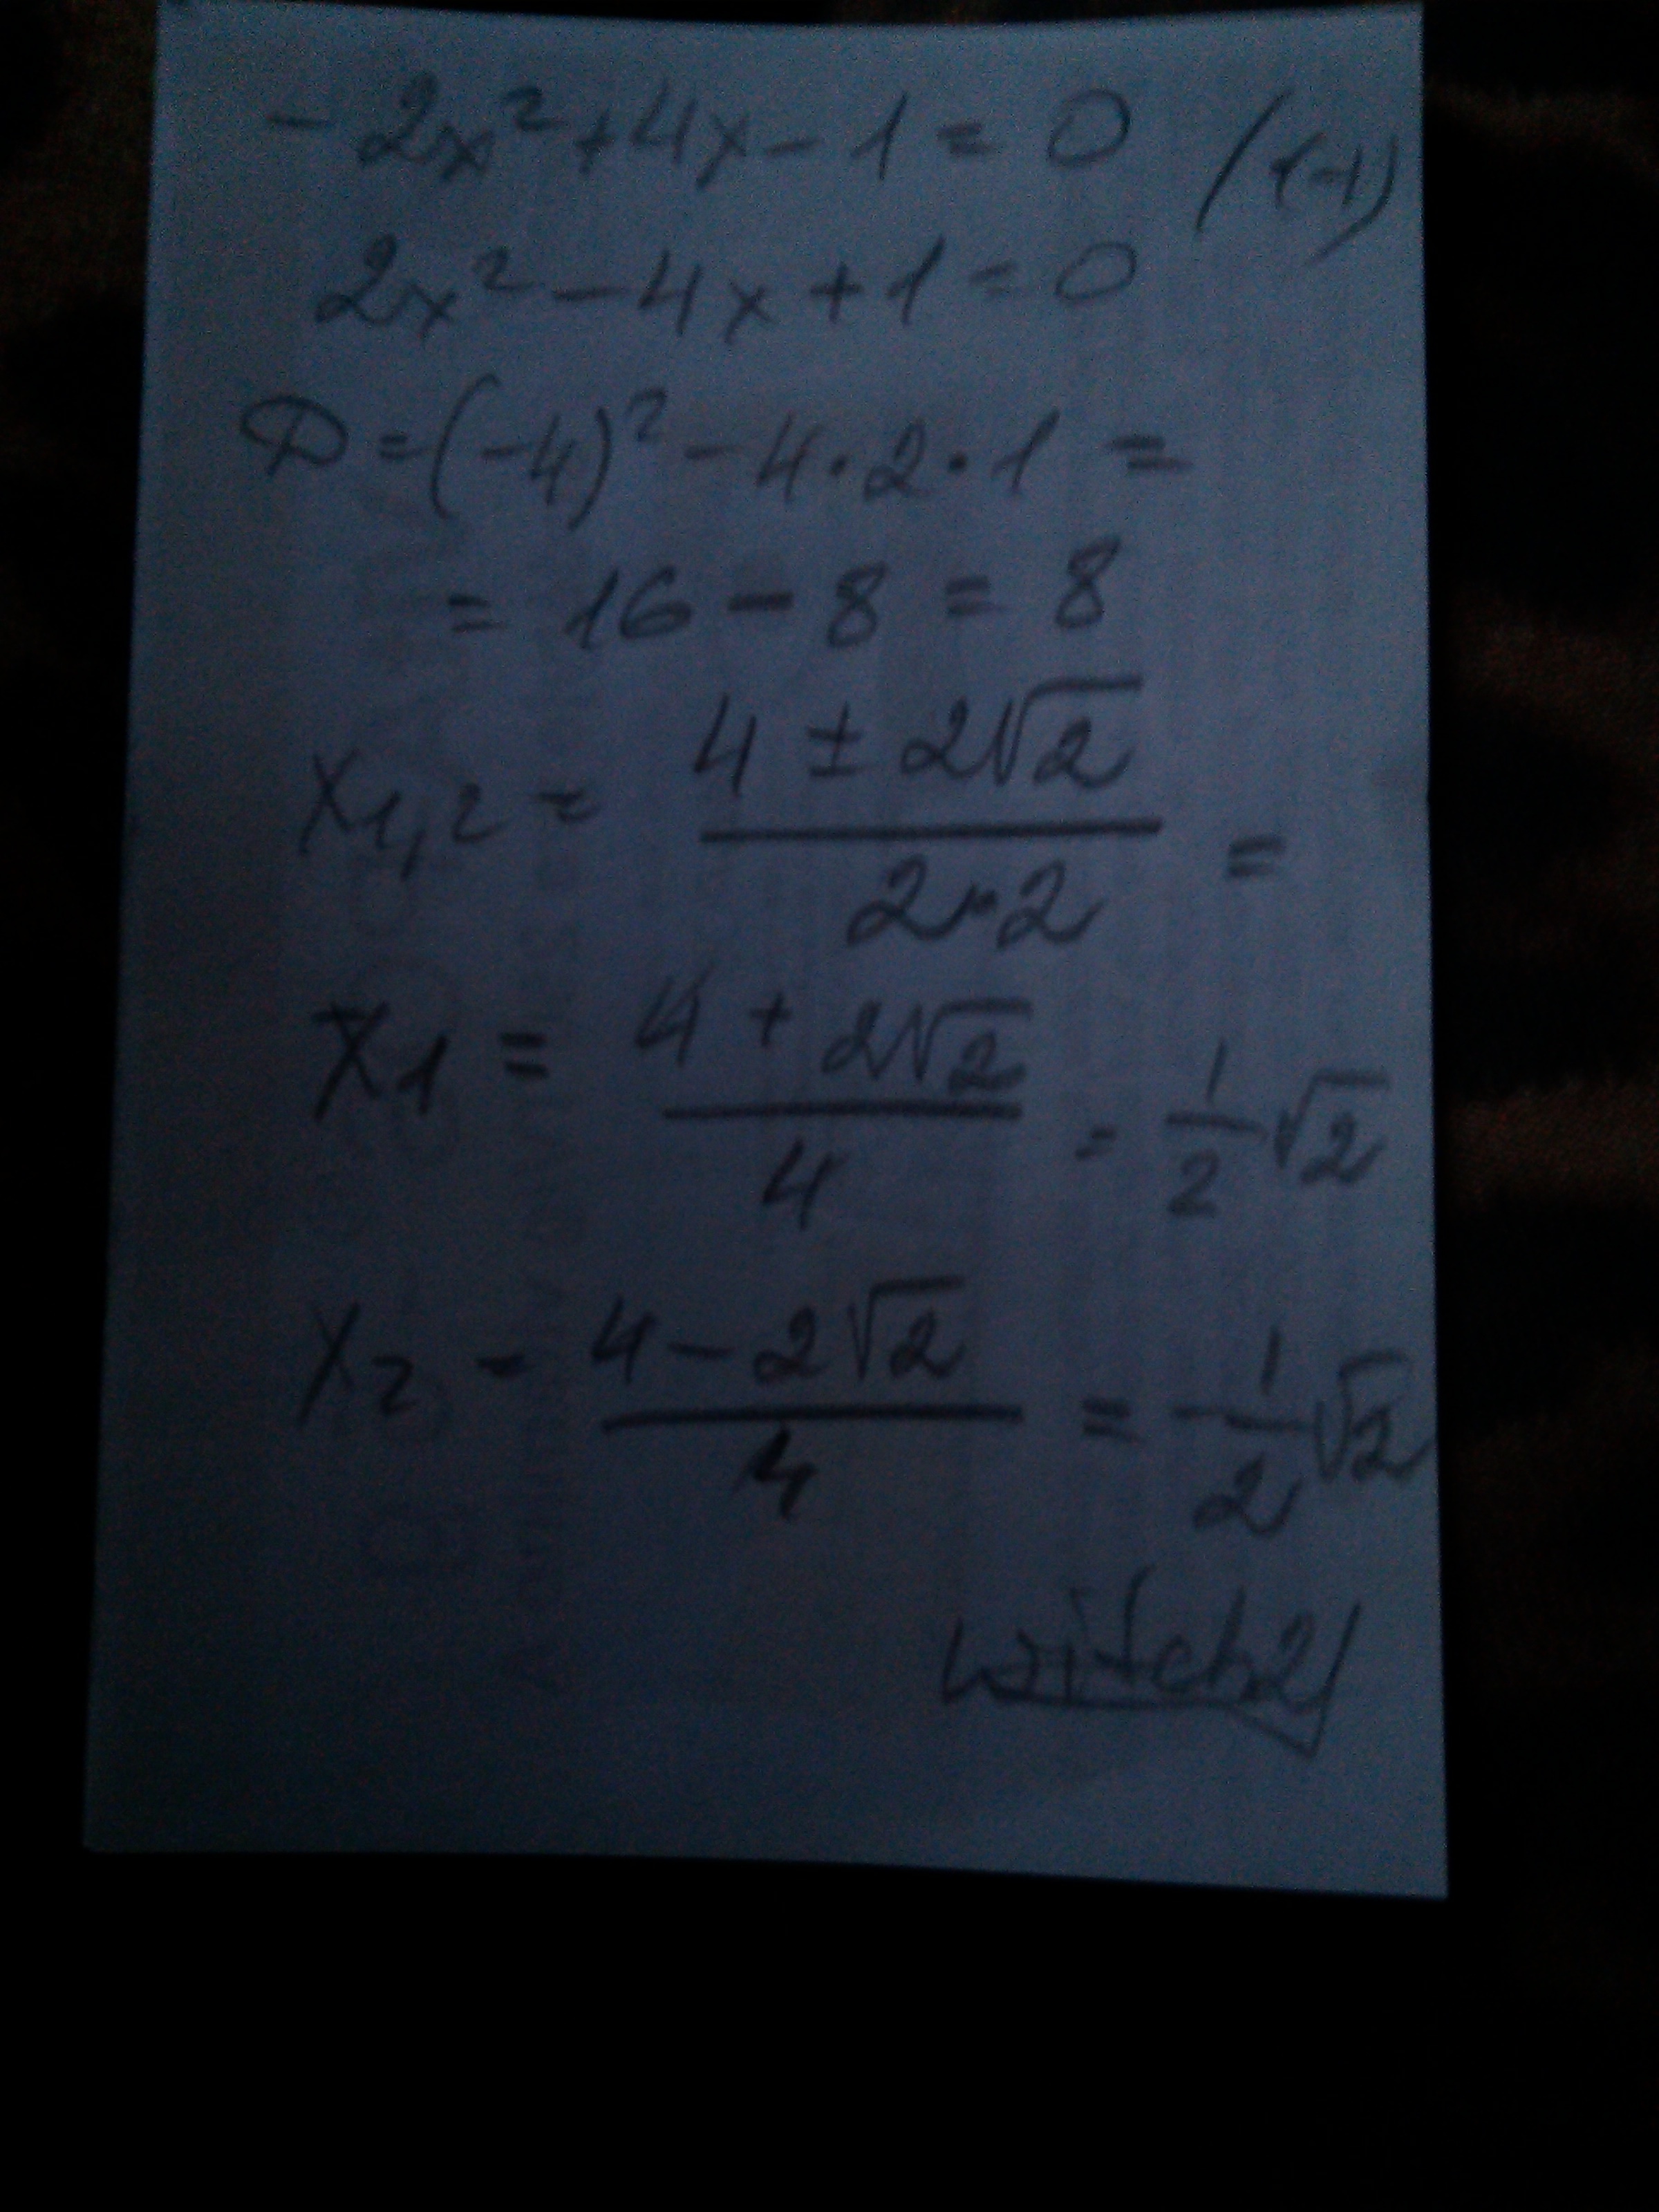 -2x²+4x-1=0 /·(-1)
2x²-4x+1=0
D=(-4)²-4·2·1=
=16-8=8
x₁,₂=(4±2√2)/(2·2)=
x₁=(4+2√2)/4=1/2√2
x₂-(4-2√2)/4=-1/2√2
witch21